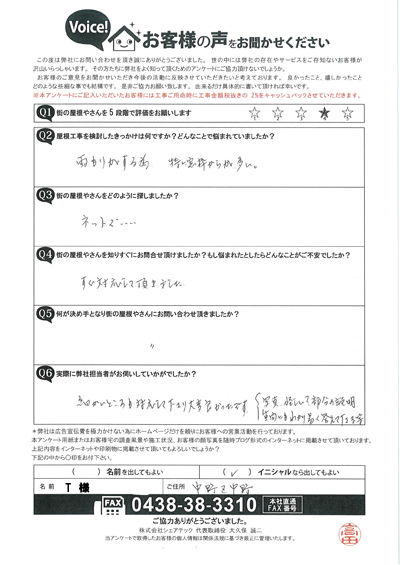 Voice! お客様の声をお聞かせください
この度は弊社にお問い合わせを頂き誠にありがとうございました。世の中には弊社の存在やサービスをご存知ないお客様が
沢山いらっしゃいます。その方たちに弊社をよく知って頂くためのアンケートにご協力頂けないでしょうか。
お客様のご意見をお聞かせいただき今後の活動に反映させていただきたいと考えております。良かったこと、嬉しかったこと
どのような些細な事でも結構です。是非ご協力お願い致します。出来るだけ具体的に書いて頂ければ幸いです。
※本アンケートにご記入いただいたお客様には工事ご用命時に工事金額税抜きの2%をキャッシュバックさせていただきます。
Q1 街の屋根やさんを5段階で評価をお願いします ☆ ☆ ☆ ★ ☆
Q2 屋根工事を検討したきっかけは何ですか?どんなことで悩まれていましたか?
雨もりがする為 特に窓枠からが多い。
Q3 街の屋根やさんをどのように探しましたか?
ネットで……
Q4 街の屋根やさんを知りすぐにお問合せ頂けましたか?もし悩まれたとしたらどんなことがご不安でしたか?
すぐ対応して頂きました
Q5 何が決め手となり街の屋根やさんにお問い合わせ頂きましたか?
〃
Q6 実際に弊社担当者がお伺いしていかがでしたか?
細かいところまで対応して下さり大変良かったです
※弊社は広告宣伝費を極力かけない為にホームページだけを頼りにお客様への営業活動を行っております。
本アンケート用紙またはお客様宅の調査風景や施工状況、お客様の顔写真を随時ブログ形式のインターネットに掲載させて頂いております。
上記内容をインターネットや印刷物に掲載させて頂いてもよろしいでしょうか?
下記の中から〇印をお付け下さい。
( )名前を出してもよい (✓)イニシャルなら出してもよい
名前 T 様 ご住所 中野区中野
FAX 0438-38-3310 本社直通FAX番号
ご協力ありがとうございました。
株式会社シェアテック 代表取締役 大久保 誠二
当アンケートで取得したお客様の個人情報は関係法令に基づき厳正に管理いたします。